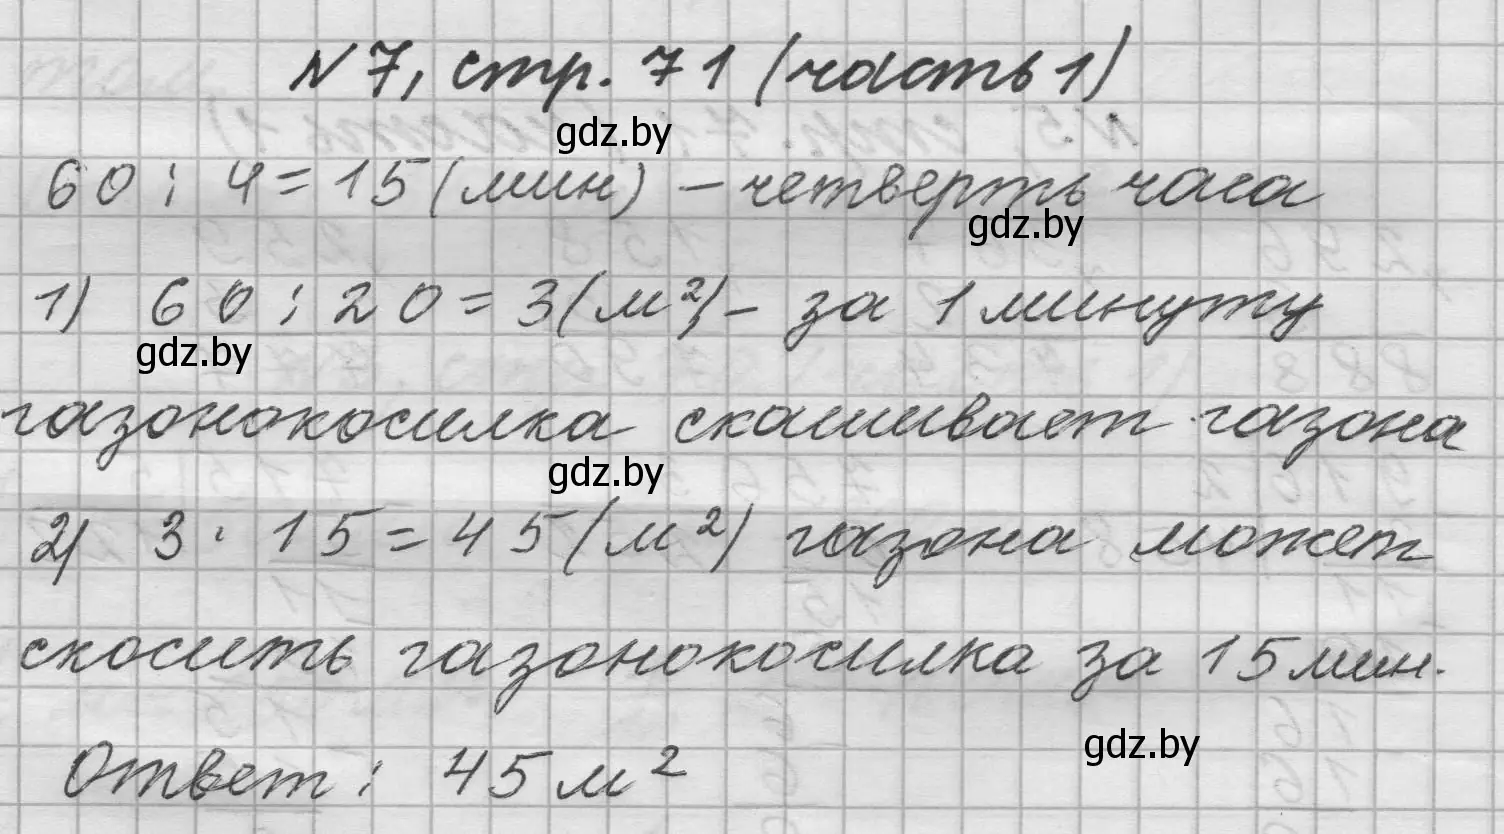 N 7, стр. 71 (часть 1)
gdz.by
60 : 4 = 15 (мин) – четверть часа
gdz.by
1) 60 : 20 = 3 (м²) – за 1 минуту
gdz.by
газонокосилка скашивает газона
gdz.by
2) 3 · 15 = 45 (м²) газона может
скосить газонокосилка за 15 мин.
gdz.by
Ответ: 45 м²